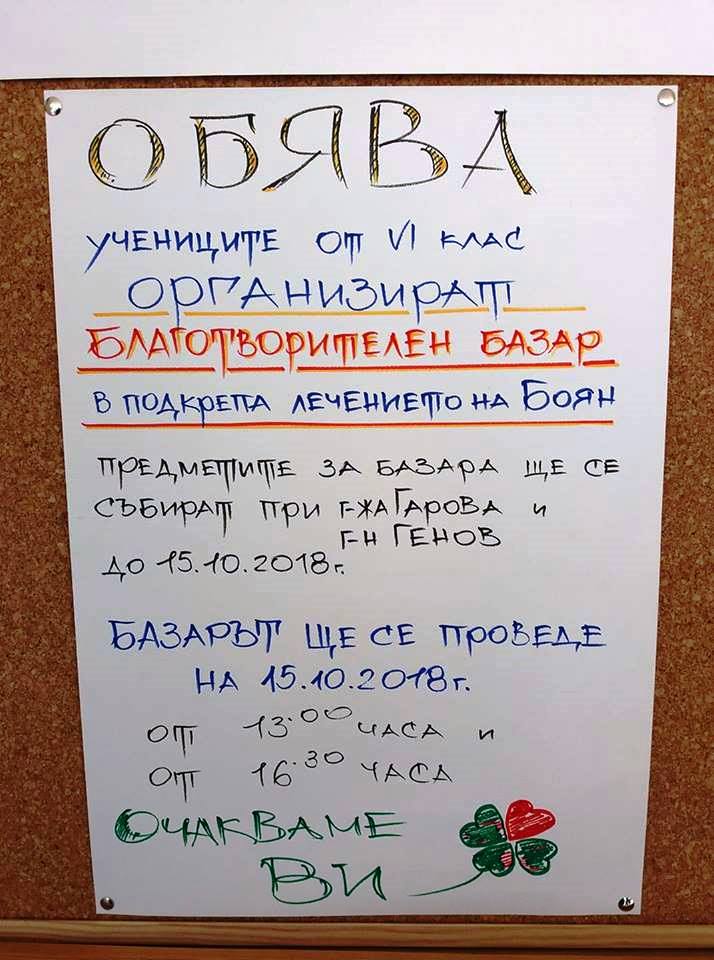 ОБЯВА
УЧЕНИЦИТЕ ОТ VI КЛАС
ОРГАНИЗИРАТ
БЛАГОТВОРИТЕЛЕН БАЗАР
В ПОДКРЕПА ЛЕЧЕНИЕТО НА БОЯН
ПРЕДМЕТИТЕ ЗА БАЗАРА ЩЕ СЕ
СЪБИРАТ ПРИ Г-ЖА ГАРОВА И
Г-Н ГЕНОВ
ДО 15.10.2018г.
БАЗАРЪТ ЩЕ СЕ ПРОВЕДЕ
НА 15.10.2018г.
ОТ 13:00 ЧАСА И
ОТ 16:30 ЧАСА
ОЧАКВАМЕ
ВИ